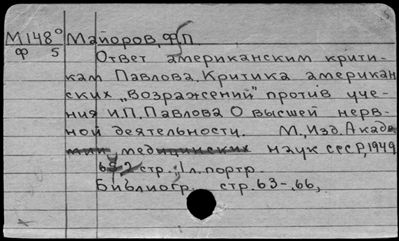 М148° Майоров, Ф.П.
Ф 5 Ответ американским крити-
кам Павлова. Критика американ
ских „Возражений" против уче-
ния И.П. Павлова О высшей нерв-
ной деятельности. М., Изд. Акаде
мии медицинских наук СССР, 1949
стр. 1 л. портр.
Библиогр. стр. 63-66,